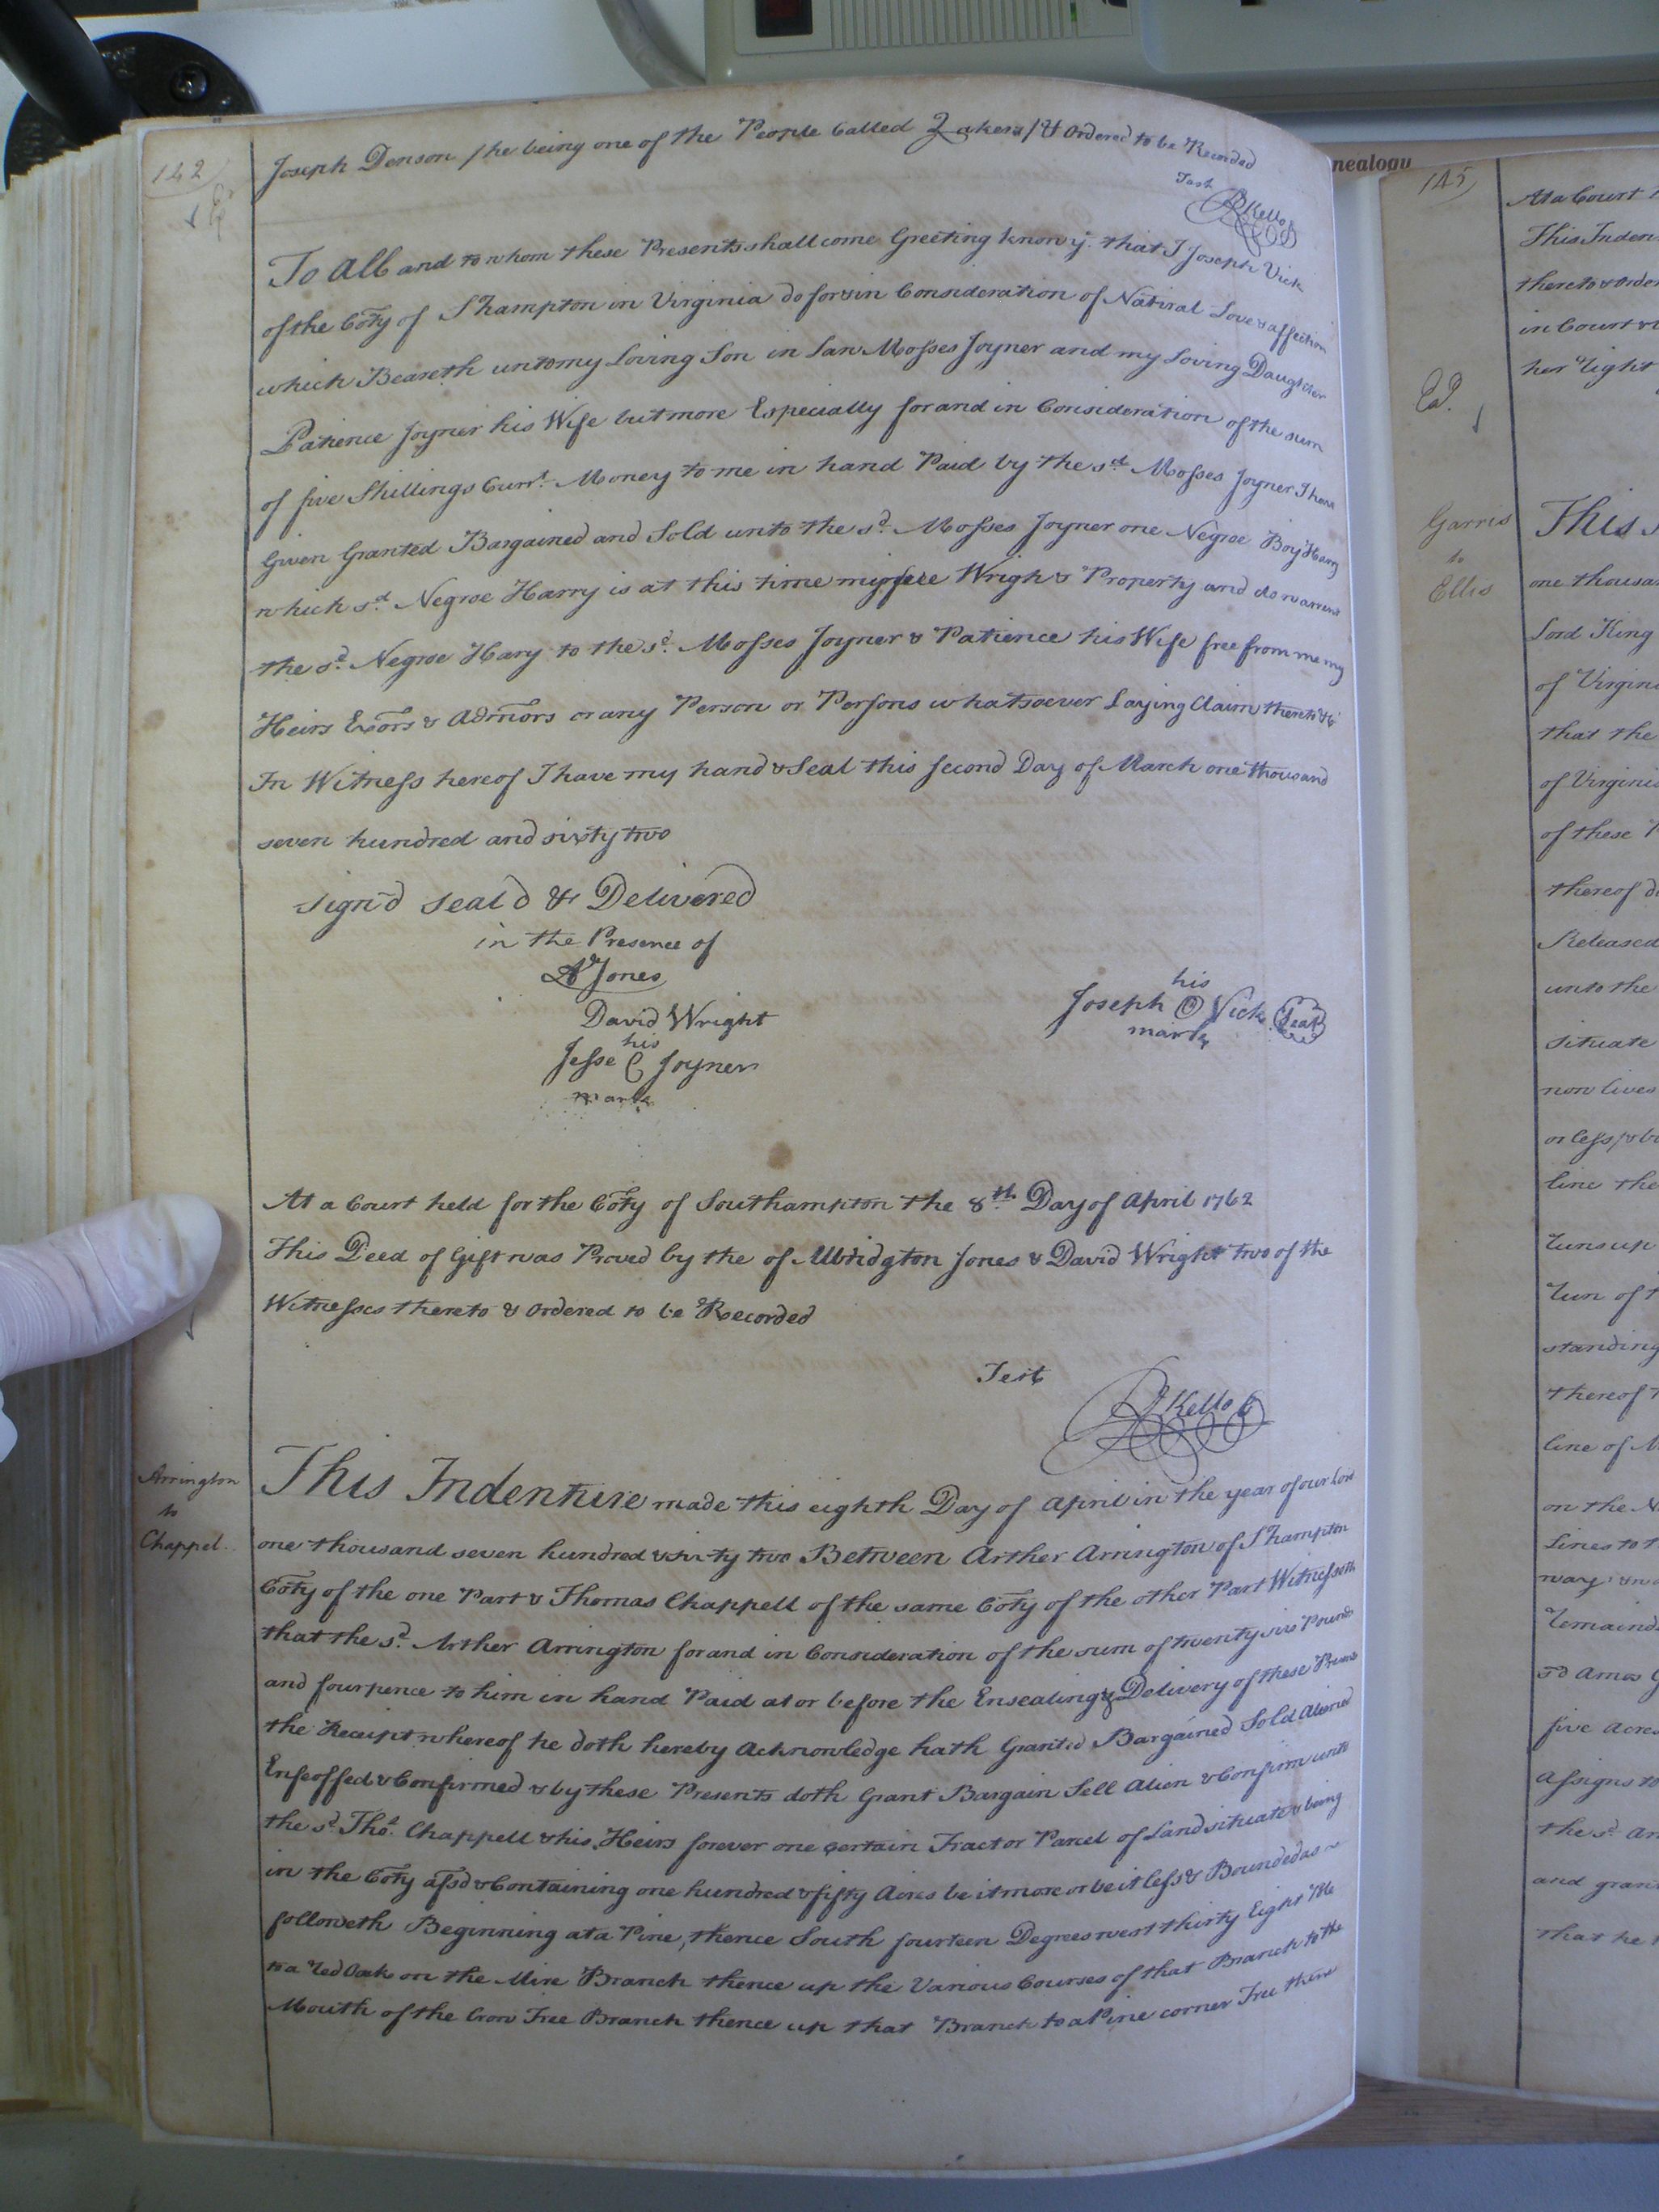 142
Joseph Denson /he being one of the People Called Quakers/ & Ordered to be Recorded
Test
RKello C
To All and to whom these Presents shall come Greeting know ye that I Joseph Vick
of the Coty of S Thampton in Virginia do for & in Consideration of Natural Love & affection
which Beareth unto my Loving Son in Law Mosses Joyner and my Loving Daughter
Patience Joyner his Wife but more Especially for and in Consideration of the sum
of five Shillings Currt. Money to me in hand Paid by the sd Mosses Joyner I have
Given Granted Bargained and Sold unto the sd. Mosses Joyner one Negroe Boy Harry
which sd. Negroe Harry is at this time my Wright & Property and do warrent
the sd. Negroe Hary to the sd. Mosses Joyner & Patience his Wife free from me my
Heirs Exors & Admors or any Person or Persons whatsoever Laying Claim thereto
In Witness hereof I have my hand & Seal this second Day of March one thousand
seven hundred and sixty two
sign'd seal'd & Delivered
in the Presence of
Jones
David Wright
his
Jesse C Joyner
mark
his
Joseph Vick Seal
mark
At a Court held for the Coty of Southampton the 8th Day of April 1762
This Deed of Gift was Proved by the of Jones & David Wright two of the
Witnesses thereto & ordered to be Recorded
Test
RKello C
Arrington
to
Chappel.
This Indenture made this eighth Day of April in the year of our Lord
one thousand seven hundred & sixty two Between Arther Arrington of S Thampton
Coty of the one Part & Thomas Chappell of the same Coty of the other Part Witnesseth
that the sd. Arther Arrington for and in Consideration of the sum of twenty six Pounds
and four pence to him in hand Paid at or before the Ensealing & Delivery of these
the Receipt whereof he doth hereby Acknowledge hath Granted Bargained Sold Aliened
Enfeoffed & Confirmed & by these Presents doth Grant Bargain Sell Alien & Confirm unto
the sd. Thos. Chappell & his Heirs forever one certain Tract or Parcel of Land situate & being
in the Coty afsd & Containing one hundred & fifty Acres be it more or be it less & Bounded as ~
followeth Beginning at a Pine, thence South fourteen Degrees west thirty Eight
to a red Oak on the Mire Branch thence up the Various Courses of that Branch to the
Mouth of the Crow Tree Branch thence up that Branch to a Pine corner Tree
nealogy
145
At a Court
This Inden
thereto & Order
in Court
her right
Garris
to
Ellis
This
one thousan
Lord King
of Virgini
that the
of Virgini
of these
thereof d
Released
unto the
situate
now lives
or less
line the
runs up
run of
standing
thereof
line of
on the N
Lines to
way
remaind
sd Amos G
five Acre
Assigns to
the sd.
and gran
that he